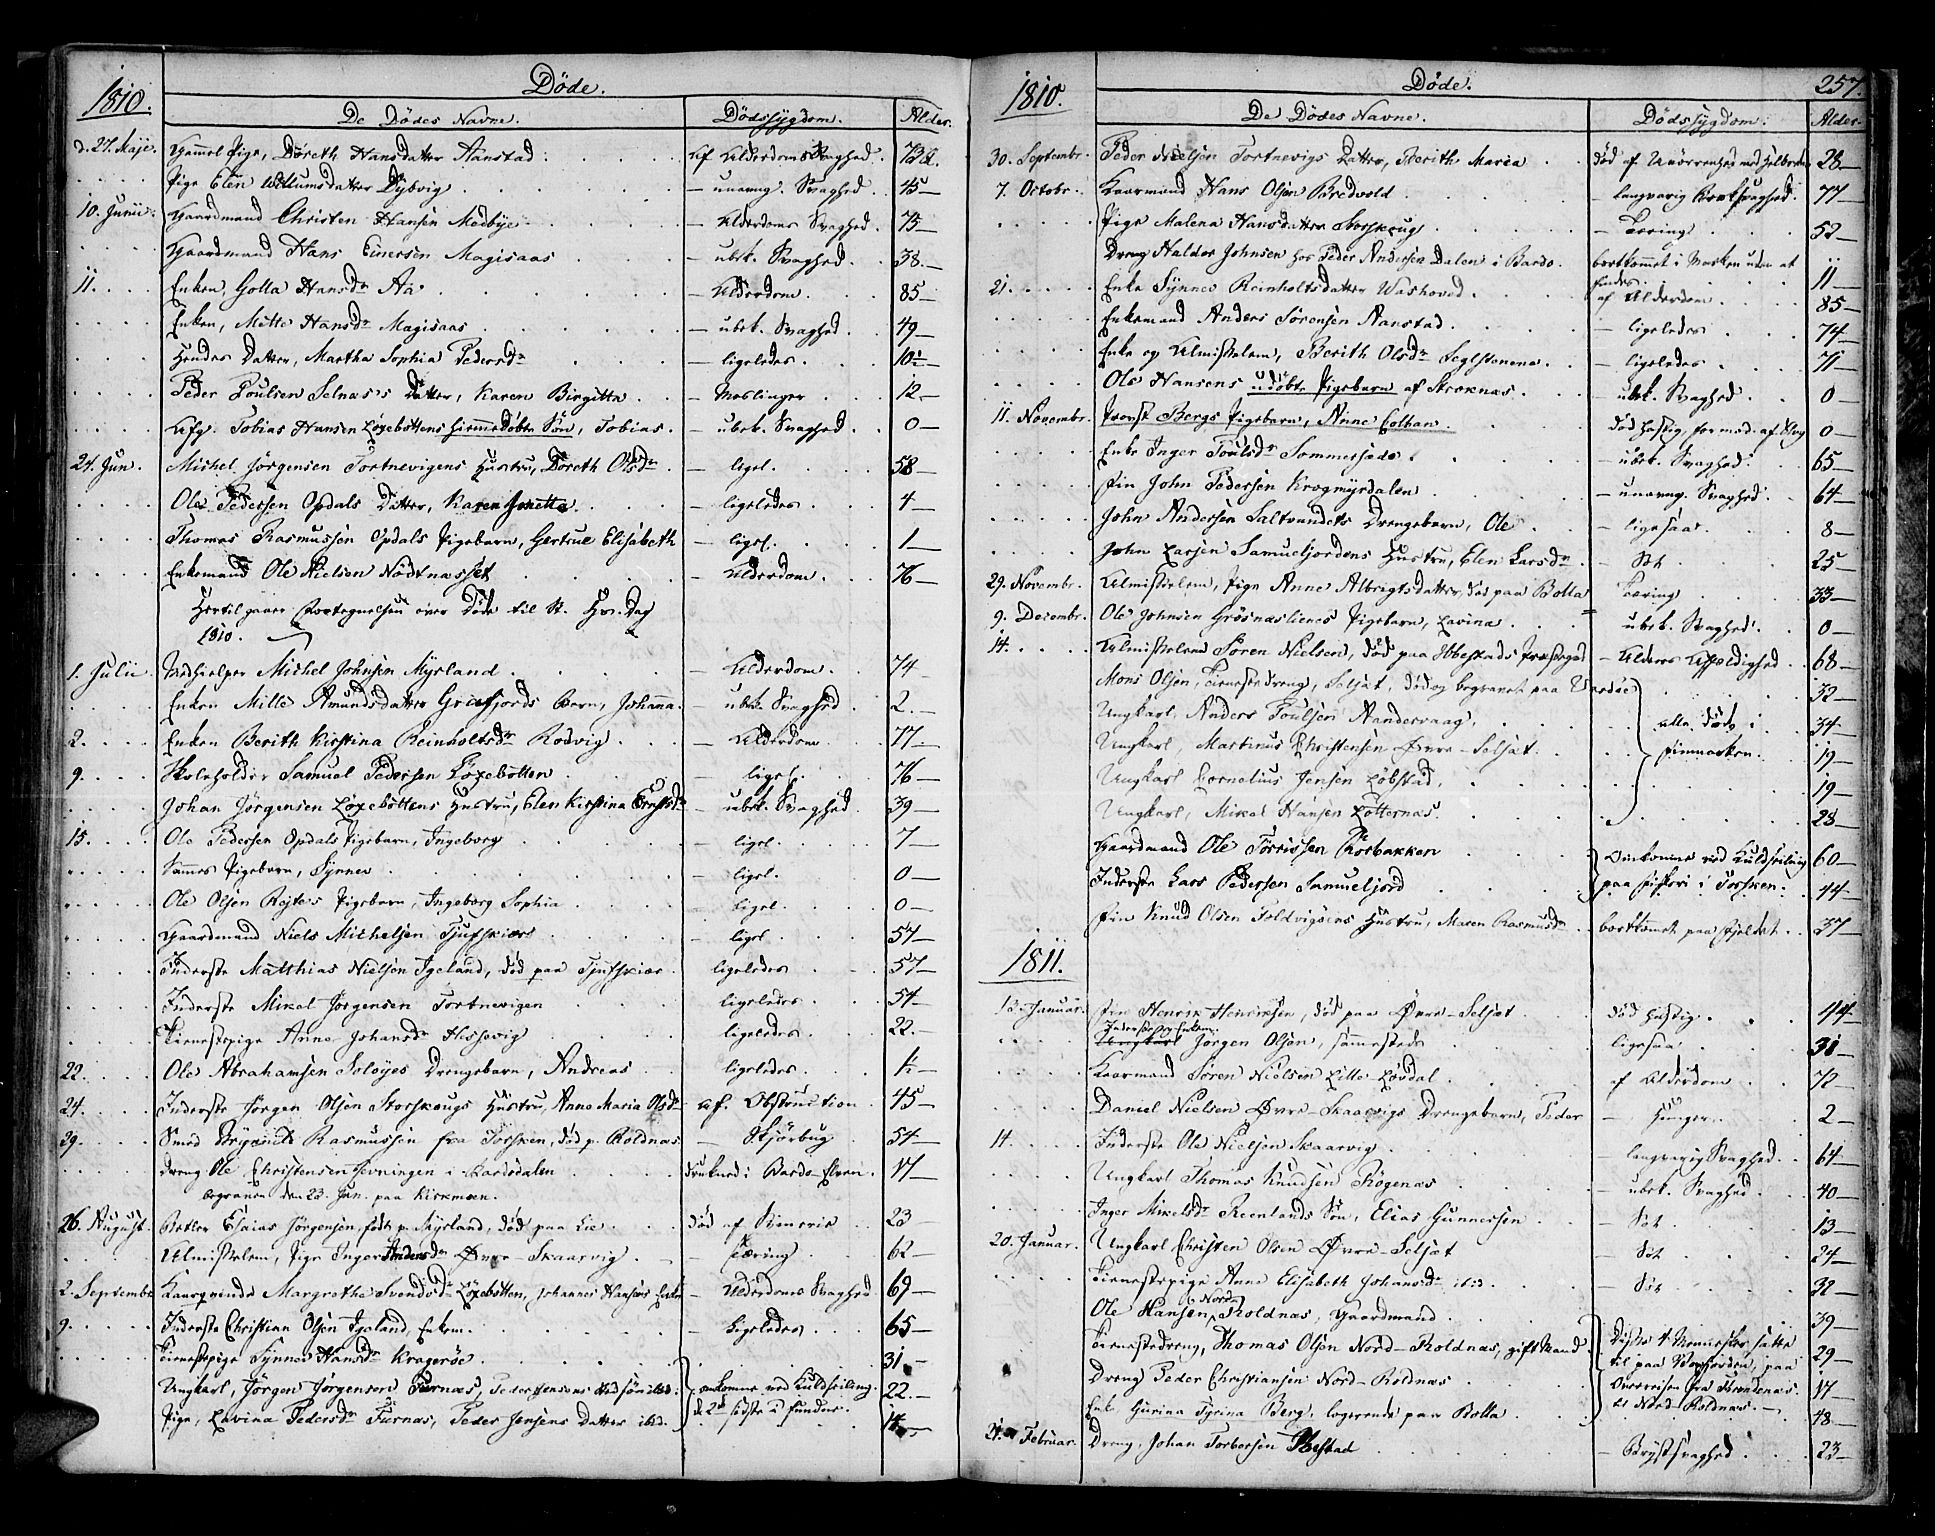 1810.
Döde.
De Dödes Navne. Dödssygdom. Alder.
d. 27. Maje. Gammel Pige, Doreth Hansdatter Aanstad. af Alderdoms Svaghed.
Pige Elen Willumsdatter Dybvig — unavng. Svaghed. 45—
10. Junii. Gaardmand Christen Hansen Medbye — Alderdoms Svaghed. 75—
Gaardmand Hans Einersen Magisaas — ubek. Svaghed. 38.—
11. Enken, Golla Hansdr Aa — Alderdom. 85—
Enken, Mette Hansdr Magisaas — ubek. Svaghed. 49—
Hendes Datter, Martha Sophia Pedersdr — ligeledes. 10½
Peder Poulsen Selnæs's Datter, Karen Birgitta — Meslinger 12—
Afg. Tobias Hansen Løxebottens hiemmedöbte Sön, Tobias. — ubek. Svaghed. 0—
24. Jun. Michel Jörgensen Tortnevigens Hustru, Doreth Olsdr — ligel. 58—
Ole Pedersen Opdals Datter, Karen Jonetta — ligeledes. 4—
Thomas Rasmussen Opdals Pigebarn, Gertrue Elisabeth — ligel. 1—
Enkemand Ole Nielsen Nödtnæsset — Alderdom. 76—
Hertil gaaer Fortegnelsen over Döde til St. Hs. Dag
1810.
1. Julii Medhielper Michel Johnsen Myrland — Alderdom. 74—
Enken Mille Amundsdatter Grasfjords Barn, Johanna. — ubek. Svaghed. 2.—
2. Enken Berith Kirstina Reinholtsdr Rodvig — Alderdom. 77—
9. Skoleholder Samuel Pedersen Løxebotten — ligel. 76—
Johan Jörgensen Løxebottens Hustru, Elen Kirstina Ernstdr — ubek. Svaghed. 39—
15. Ole Pedersen Opdals Pigebarn, Ingeborg — ligel. 7—
Sammes Pigebarn, Synnev — ligel. 0—
Ole Olsen Rojtes Pigebarn, Ingeborg Sophia — ligel. 0—
Gaardmand Niels Michelsen Tjufskiær — ligel. 57—
Inderste Matthias Nielsen Igeland, död paa Tjufskiær. ligeledes 57—
Inderste Mikel Jörgensen Tortnevigen ligeledes. 54—
Tienestepige Anne Johansdr Hessevig ligeledes 22.—
22. Ole Abrahamsen Soloyes Drengebarn, Andreas ligeledes.
24. Inderste Jörgen Olsen Storskougs Hustru, Anne Maria Olsdr af Obstruction 45—
29. Smed Rasmussen fra Torsken, död p. Roldnæs — Skjörbug 54—
Dreng Ole Christensen i Bardodalen druknet i Bardo-Elven. 17—
begraven den 23. Jun. paa Kirkmoen.
26. August. Esaias Jörgensen, född p. Myrland, död paa Lie död af 23—
Almisselem, Pige Inger Andersdr Øvre-Skaarvig — Tæring. 62—
2. Septembr. Kaarqvinde Margrethe Svendsdr Løxebotten, Johannes Hansens Enke — Alderdoms Svaghed 69—
9. Inderste Christian Olsen Igeland, Enkem. — Ligeledes 65—
Tienestepige Synnev Hansdr Kragerøe 31—
Ungkarl, Jörgen Jörgensen Furnæs, Peder Jensens ibid: omkomne ved Kuldseiling. 22.—
Pige, Lavina Pedersdr Furnæs, Peder Jensens Datter ibid. de 2de sidste ei fundne.

1810. Döde. 257.
De Dödes Navne. Dödssygdom. Alder.
30. Septembr. Peder Nielsen Tortnevigs Datter, Berith Maria död af 28—
7. Octobr. Kaarmand Hans Olsen Bredvold — langvarig Brystsvaghed. 77—
Pige Malena Hansdatter Storskoug — Tæring 52—
Dreng Haldor Johnsen hos Peder Andersen Dalen i Bardo. bortkommet i Marken uden at findes. 11—
21. Enke Synnev Reinholtsdatter Washoved af Alderdom 85—
Enkemand Anders Sörensen Aanstad. — ligeledes 74—
Enke og Almisselem, Berith Olsdr Seglstenene — ligeledes 71—
Ole Hansens udöbte Pigebarn af Straknæs — ubek. Svaghed. 0—
11. Novembr. Provst Bergs Pigebarn, Anne Colban död hastig, 0—
Enke Inger Poulsdr Sommersæde — ubek. Svaghed. 65—
Fin John Pedersen Krogmyrdalen — unavng. Svaghed. 64—
John Andersen Saltvandets Drengebarn, Ole — ligesaa. 8—
John Larsen Samueljordens Hustru, Elen Larsdr — dito 25—
29. Novembr. Almisselem, Pige Anne Albrigtsdatter, död paa Bolla — Tæring 33—
9. Decembr. Ole Johnsen Gröenæslienes Pigebarn, Lavina ubek. Svaghed. 0—
14. Almisselem Sören Nielsen, död paa Ibbestads Præsteg. — Alders Affældighed. 68—
Mons Olsen, Tienestedreng, Selset, död og begravet paa Vardøe 32—
Ungkarl, Anders Poulsen Aandervaag. alle döde i 34—
Ungkarl, Martinus Christensen Øvre-Selset Finmarken. 19—
Ungkarl Cornelius Jensen Löbstad. 19—
Ungkarl, Mikel Hansen Lötternæs. 28—
Gaardmand Ole Torrissen Rörbakken Omkomne ved Kuldseiling 60—
Inderste Lars Pedersen Samueljord paa Fiskeri i Torsken. 44—
Fin Knud Olsen Foldvigens Hustru, Maren Rasmusdr bortkommet paa Fjeldet. 37—
1811.
13. Januar. Fin Henrik Henriksen, död paa Øvre-Selset död hastig. 44—
Inderste og Enkem.
Ungkarl Jörgen Olsen, sammesteds ligesaa 31—
Kaarmand Sören Nielsen Lille-Løvdal af Alderdom 72—
Daniel Nielsen Øvre-Skaarvigs Drengebarn, Peder — Hunger. 2—
14. Inderste Ole Nielsen Skaarvig — langvarig Svaghed. 64—
Ungkarl Thomas Knudsen Rögenæs — ubek. Svaghed. 40—
Inger Mikelsdr Reenlands Sön, Elias Gunnersen — dito 13—
20. Januar. Ungkarl Christen Olsen Øvre-Selset — dito 24—
Tienestepige Anne Elisabeth Johansdr ibid. — dito 32—
Ole Hansen Nord-Roldnæs, Gaardmand 39—
Tienestedreng, Thomas Olsen Nord-Roldnæs, gift Mand Disse 4 Mennesker satte 29—
Dreng Peder Christiansen Nord-Roldnæs til paa Vogsfjorden, paa 17—
Enke Gurina Tyrina Berg, logerende paa Bolla Overreisen fra Trondenæs til Nord-Roldnæs.— 48—
Februar. Dreng, Johan Torbersen — Brystsvaghed 23—